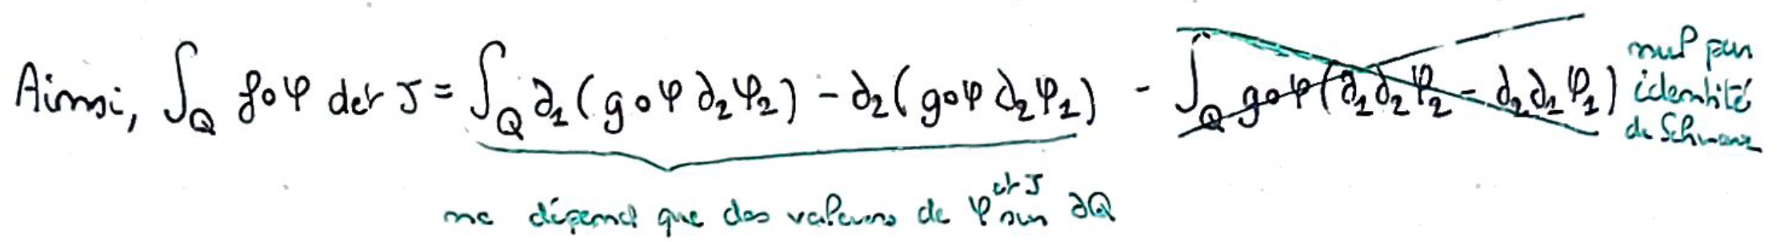 Ainsi, ∫_Q f∘φ det J = ∫_Q ∂₁(g∘φ ∂₂φ₂) − ∂₂(g∘φ ∂₂φ₁) - ∫_Q g∘φ(∂₁∂₂φ₂ − ∂₂∂₁φ₁) nul par
identité
de Schwarz
et J
ne dépend que des valeurs de φ sur ∂Q